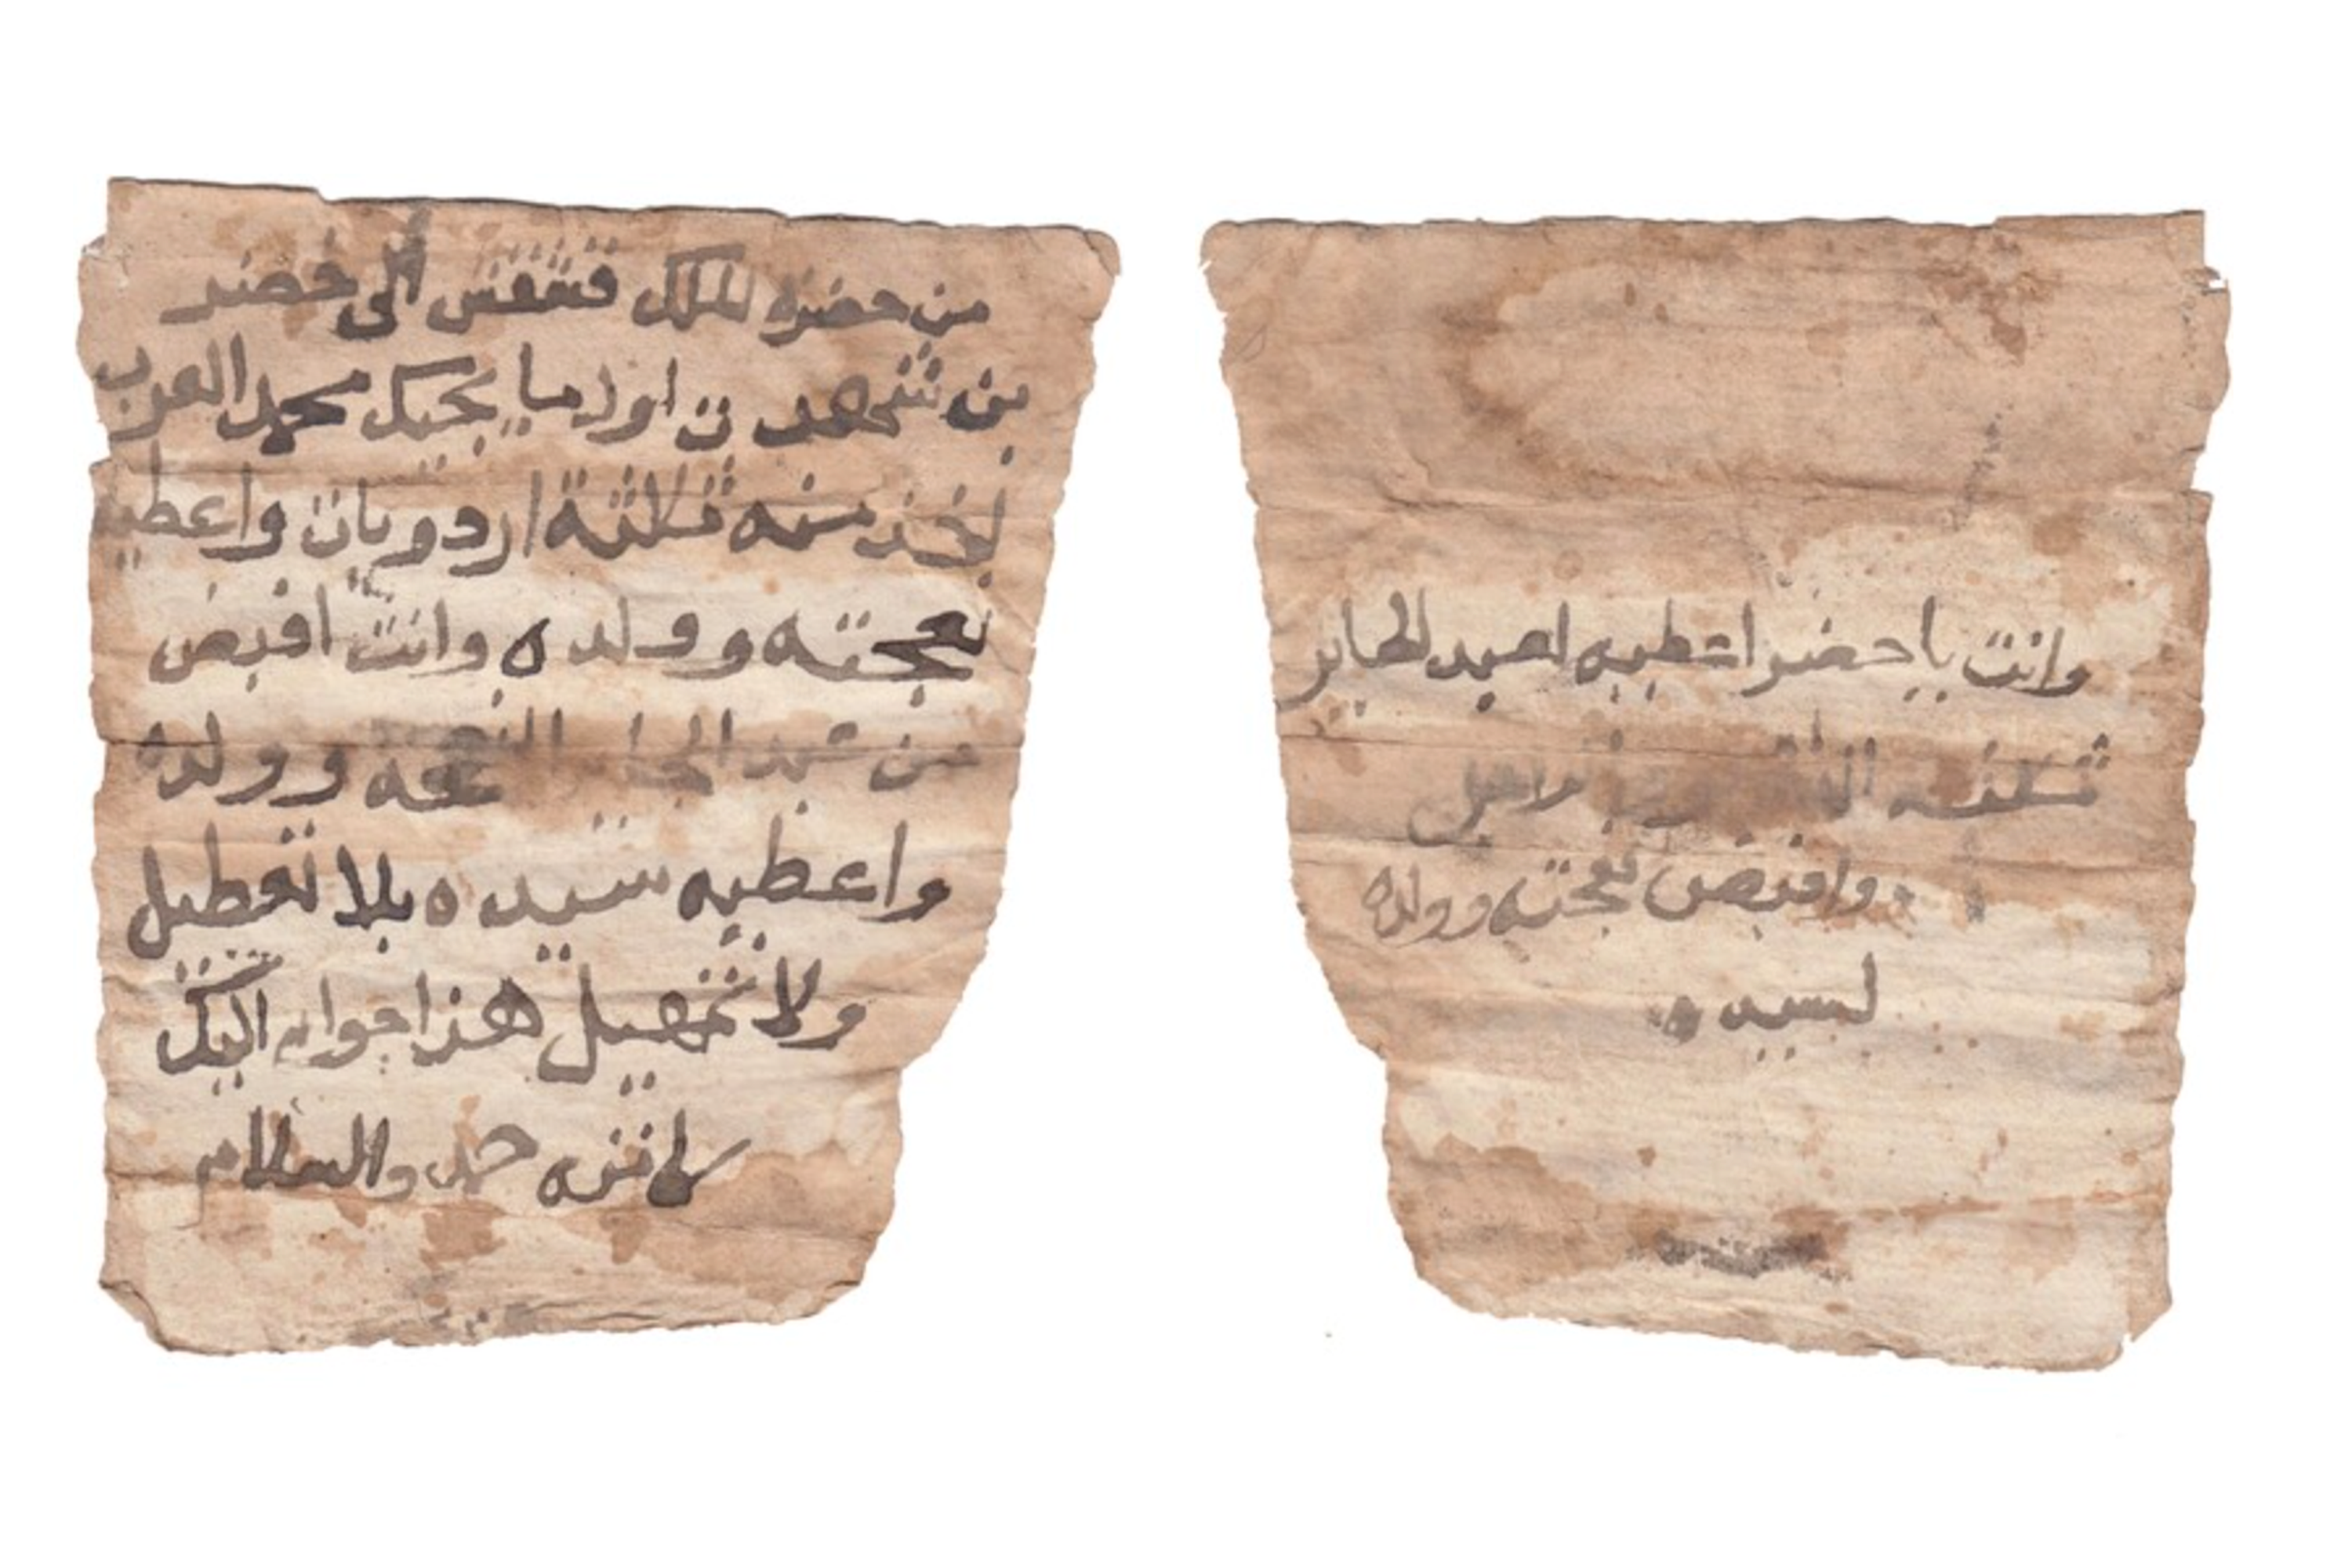 من حضره الملك قشقش الى خضر
بن شهد ن اول ما يجيك محمد العرب
تخذ منه ثلاثة اردويات واعطيه
نعجته وولده وانت اقبض
من عبد النعجه وولده
واعطيه سيده بلا تعطيل
ولا تمهيل هذا جواب اليك
كاتبه حمد والسلام
وانت يا خضر اعطيه لعبد
واقبض نعجته وولده
لسيده